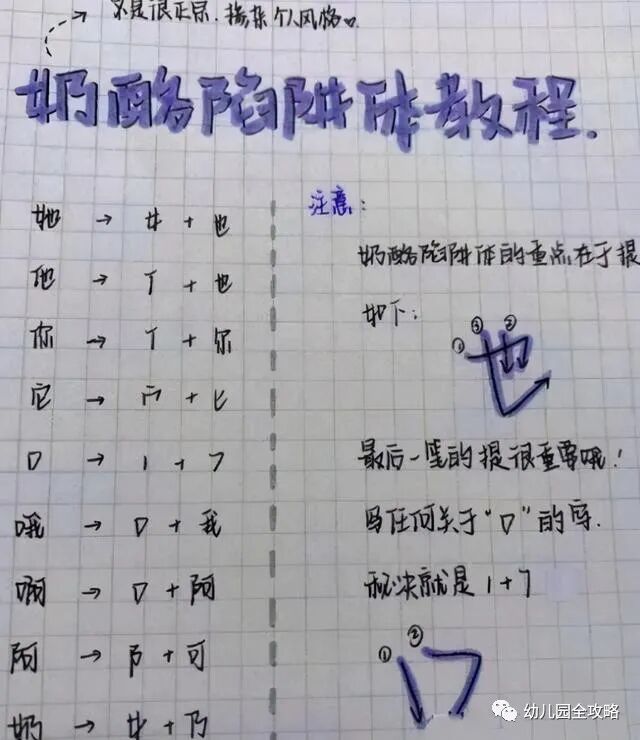 不是很正宗.掺杂个人风格。
奶酪陷阱体教程.
她 → 女 + 也
他 → 亻 + 也
你 → 亻 + 尔
它 → 宀 + 匕
口 → 1 + 7
哦 → 口 + 我
啊 → 口 + 阿
阿 → 阝 + 可
奶 → 女 + 乃
注意:
奶酪陷阱体的重点在于提
如下:
① ③ ②
也
最后一笔的提很重要哦!
写任何关于“口”的字.
秘诀就是 1 + 7
① ②
口
幼儿园全攻略